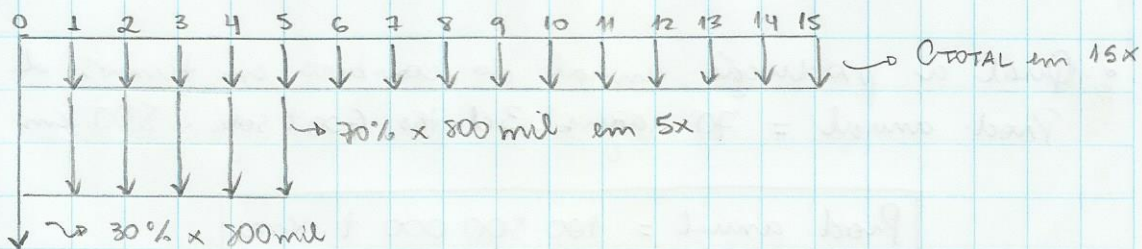 0 1 2 3 4 5 6 7 8 9 10 11 12 13 14 15
CTOTAL em 15x
70% x 800 mil em 5x
30% x 800 mil